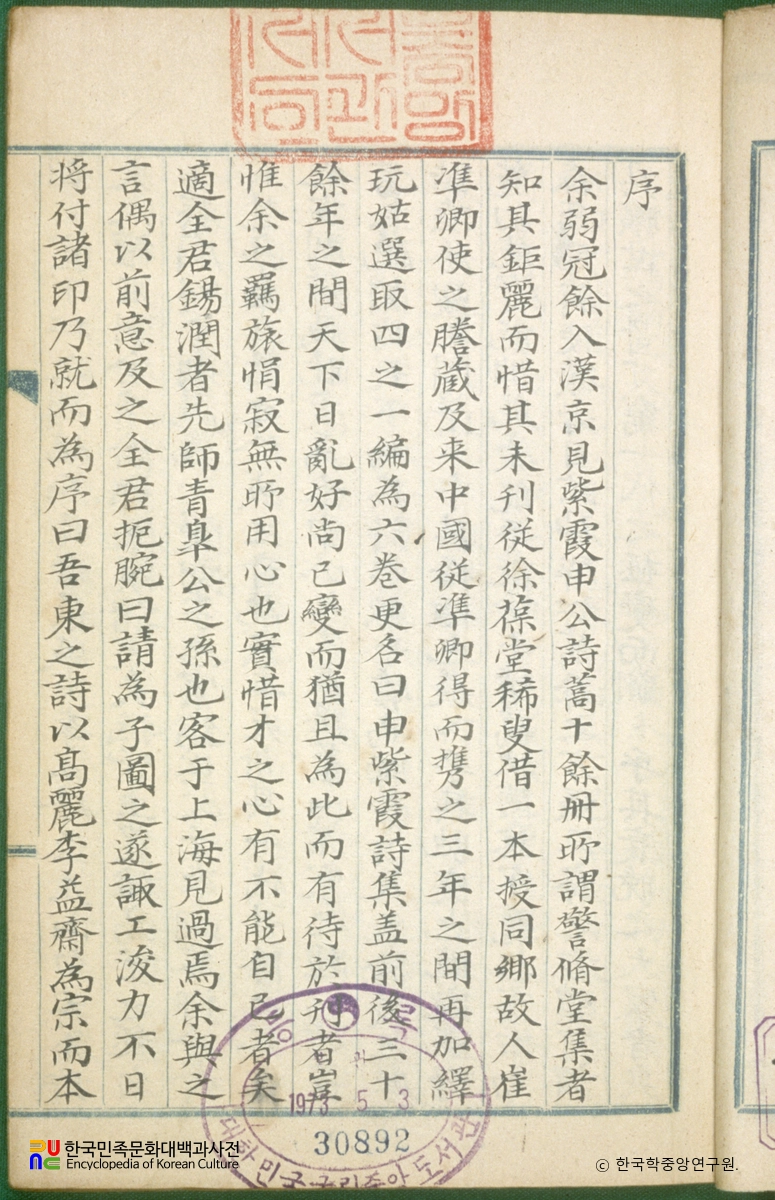 序
余弱冠餘入漢京見紫霞申公詩藁十餘冊所謂警脩堂集者
知其鉅麗而惜其未刊從徐葆堂稀叟借一本授同鄉故人崔
準卿使之謄藏及来中國從準卿得而携之三年之間再加繹
玩姑選取四之一編為六巻更名曰申紫霞詩集盖前後三十
餘年之間天下日亂好尚已變而猶且為此而有待於刊者豈
惟余之羈旅悁寂無所用心也實惜才之心有不能自已者矣
適全君錫潤者先師青皐公之孫也客于上海見過焉余與之
言偶以前意及之全君扼腕曰請為子圖之遂諏工浚力不日
将付諸印乃就而為序曰吾東之詩以高麗李益齋為宗而本
등록
1973 5 3
30892
대한민국국립중앙도서관
한국민족문화대백과사전
Encyclopedia of Korean Culture
© 한국학중앙연구원.